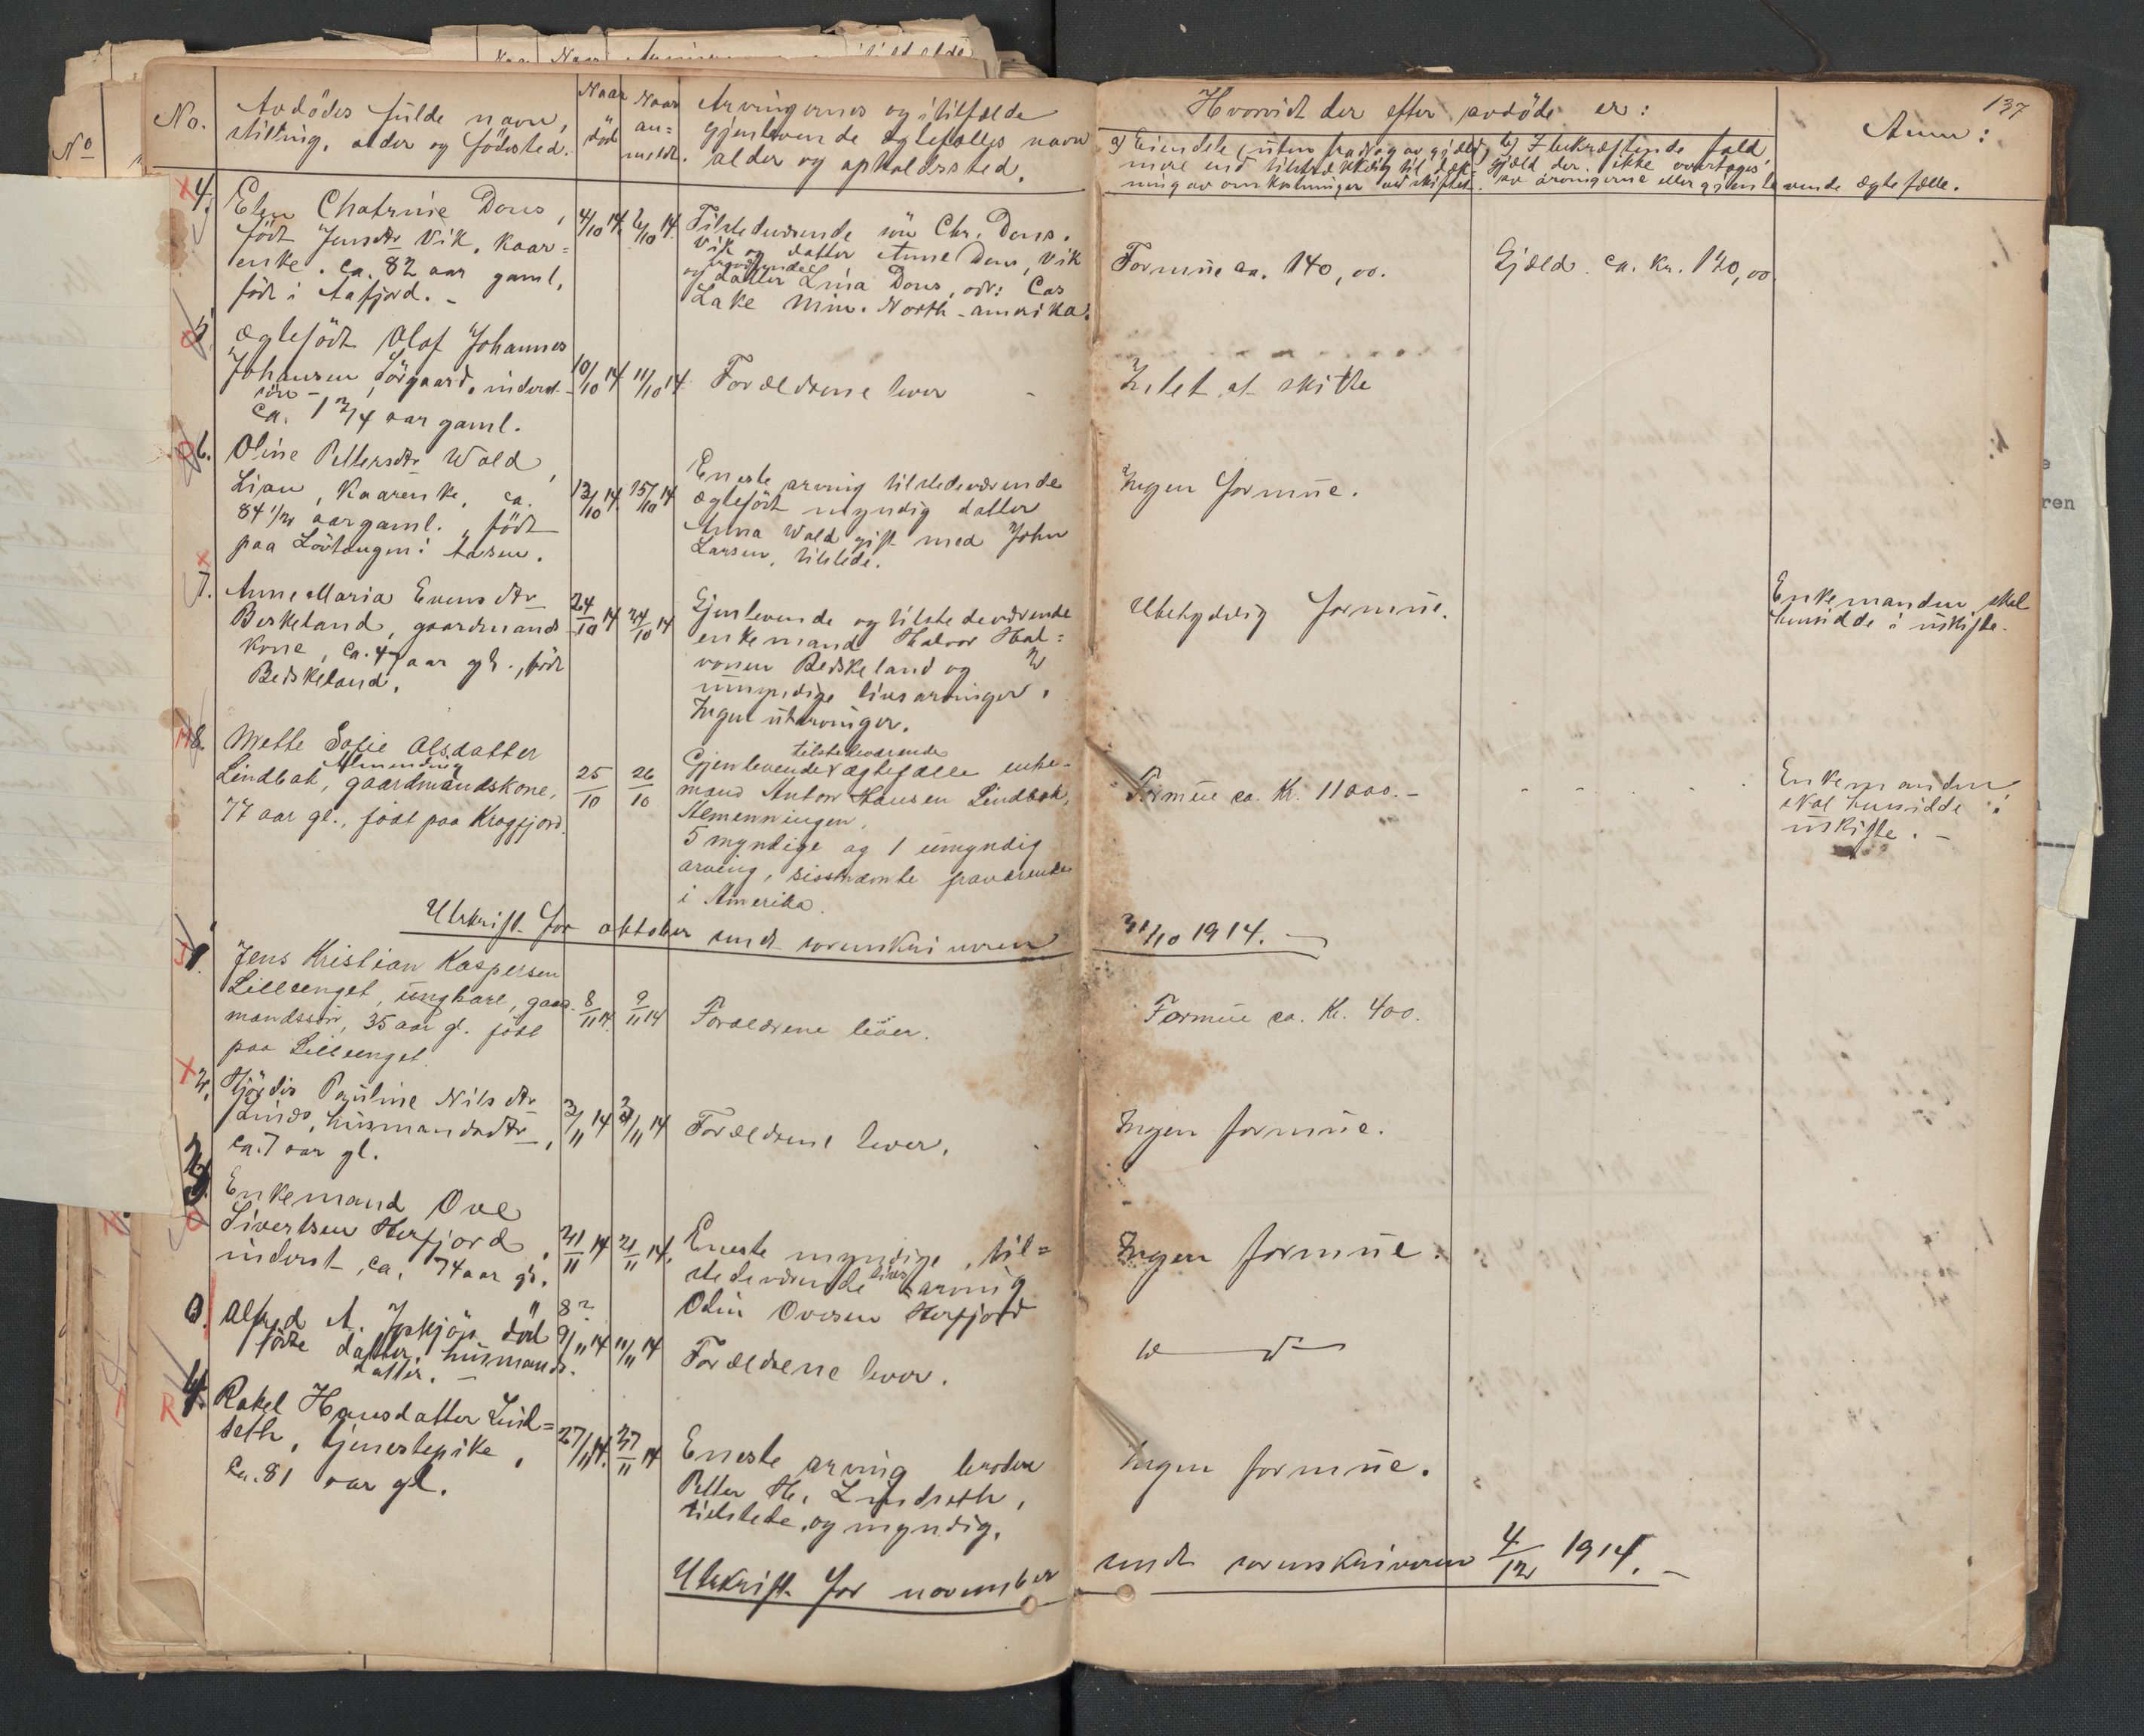 137
No.
Avdödes fulde navn,
stilling, alder og födested.
Naar
död
Naar
an=
meldt.
Arvingernes og i tilfælde
gjenlevende ægtefælles navn
alder og opholdssted.
Hvorvidt der efter avdöde er:
a) Eiendele, uten fradrag av gjæld,
mere end tilstrækkelig til dæk=
ning av omkostninger ved skiftet.
b) I bekræftende fald,
gjæld der ikke overtages
av arvingerne eller gjenlevende ægtefælle.
Anm:
4.
Elen Chatrine Dons,
født Jensdtr Vik, kaar=
enke. ca. 82 aar gaml,
född i Aafjord. -
4/10 14.
6/10 14.
Tilstedeværende sön Chr. Dons,
Vik og datter Anne Dons, Vik
fraværende
og datter Lina Dons, adr: Cas
Lake Min. North-amerika.
Formue ca. 140,00.
Gjæld ca. kr. 120,00.
5.
Ægtefödt Olaf Johannes
Johansen Sörgaard, inderst-
sön -
ca. 1 3/4 aar gaml.
10/10 14
11/10 14
Forældrene lever -
Intet at skifte
6.
Oline Pettersdtr Wold,
Lian, kaarenke, ca.
84 1/2 aar gaml., födt
paa Lövtangen i
13/10 14.
15/10 14
Eneste arving tilstedeværende
ægtefödt myndig datter
Anna Wold gift med John
Larsen, tilstede.
Ingen formue.
7.
Anne Maria Evensdtr
Berkeland, gaardmands
kone, ca. 47 aar gl., född
Beskeland.
24/10 14
24/10 14
Gjenlevende og tilstedeværende
enkemand Halvor Hal=
vorsen Beskeland og 2
umyndige livsarvinger.
Ingen utarvinger.
Ubetydelig formue.
Enkemanden skal
hensidde i uskifte.
8.
Mette Sofie Olsdatter
Almenning
Lindbak, gaardmandskone,
77 aar gl., født paa Kragfjord.
25/10
26/10
tilstedeværende
Gjenlevende ægtefælle enke-
mand Anton Hansen Lindbak,
Almenningen.
5 myndige og 1 umyndig
arving, sisstnævnte fraværende
i Amerika.
Formue ca. Kr. 11000.-
Enkemanden
skal hensidde i
uskifte. -
Utskrift for oktober sendt sorenskriveren 31/10 1914. -
1.
Jens Kristian Kaspersen
Lilleenget, ungkarl, gaard-
mandssön, 35 aar gl. født
paa Lilleenget.
8/11 14.
9/11 14
Forældrene lever.
Formue ca. Kr. 400.
2.
Hjördis Pauline Nilsdtr
Linds, husmandsdtr,
ca. 7 aar gl.
3/11 14
21/11 14
Forældrene lever.
Ingen formue.
3.
Enkemand Ove
Sivertsen Herfjord,
inderst, ca. 74 aar gl.
21/11 14
21/11 14.
Eneste myndige, til=
stedeværende livsarving
Odin Ovesen Herfjord
Ingen formue.
0.
Alfred A. död
födte datter, husmands-
datter. -
8 2
9/11 14
11/11 14
Forældrene lever.
4.
Rakel Hansdatter Lind=
seth, tjenestepike,
ca. 81 aar gl.
27/11 14.
27/11 14
Eneste arving broder
Petter H. Lindseth,
tilstede, og myndig.
Ingen formue.
Utskrift for november sendt sorenskriveren 4/12 1914. -